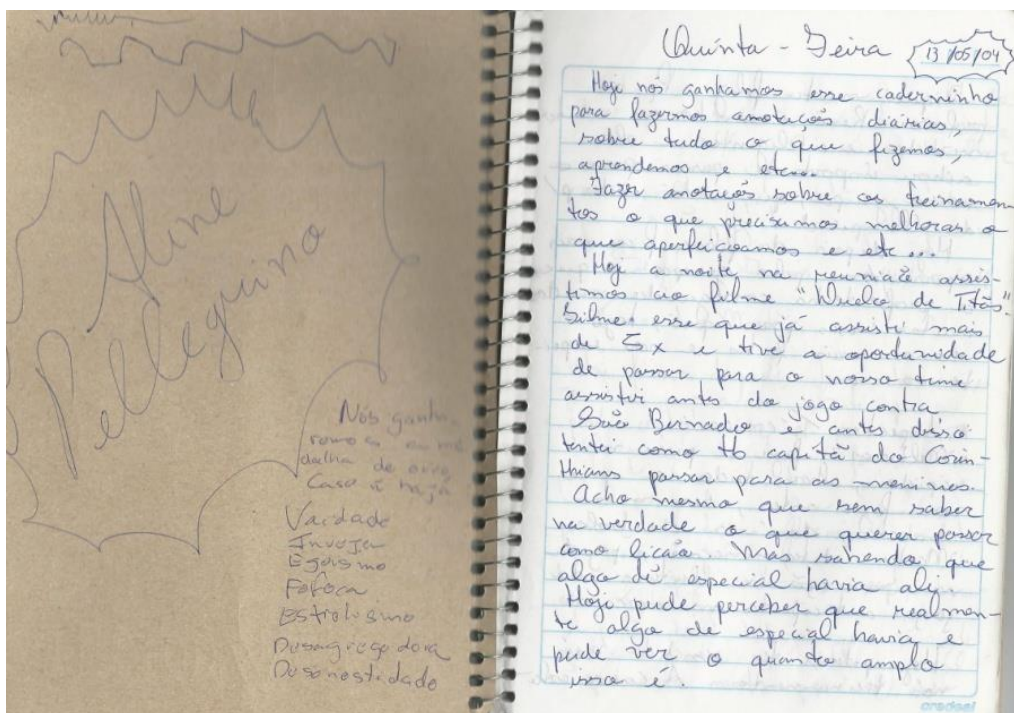 Aline
Pellegrino
Nós ganha
remos a me
dalha de ouro
Caso ñ haja
Vaidade
Inveja
Egoísmo
Fofoca
Estrelismo
Desagregadora
Desonestidade
Quinta - Feira
13/05/04
Hoje nós ganhamos esse caderninho
para fazermos anotações diárias,
sobre tudo o que fizemos,
aprendemos e etc...
Fazer anotações sobre os treinamen
tos o que precisamos melhorar o
que aperfeiçoamos e etc...
Hoje a noite na reunião assis-
timos ao filme "Duelo de Titãs".
Filme esse que já assisti mais
de 5x e tive a oportunidade
de passar para o nosso time
assistir antes do jogo contra
São Bernado e antes disso
tentei como tb capitã do Corin-
thians passar para as meninas.
Acho mesmo que sem saber
na verdade o que querer passar
como lição. Mas sabendo que
algo de especial havia ali.
Hoje pude perceber que realmen-
te algo de especial havia e
pude ver o quanto amplo
isso é.
credeal